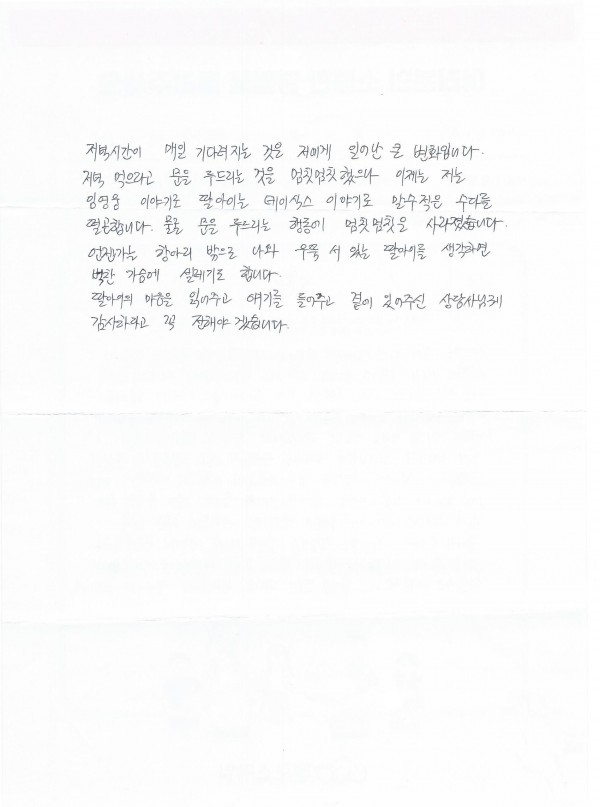 저녁시간이 매일 기다려지는 것은 저에게 일어난 큰 변화입니다.
저녁 먹으라고 문을 두드리는 것을 멈칫멈칫했으나 이제는 저는
임영웅 이야기로 딸아이는 데이식스 이야기로 말수적은 수다를
떨곤합니다. 물론 문을 두드리는 행동에 멈칫멈칫은 사라졌습니다.
언젠가는 항아리 밖으로 나와 우뚝 서 있는 딸아이를 생각하면
벅찬 가슴에 설레기도 합니다.
딸아이의 마음을 읽어주고 얘기를 들어주고 곁에 있어주신 상담사님께
감사하라고 꼭 전해야겠습니다.